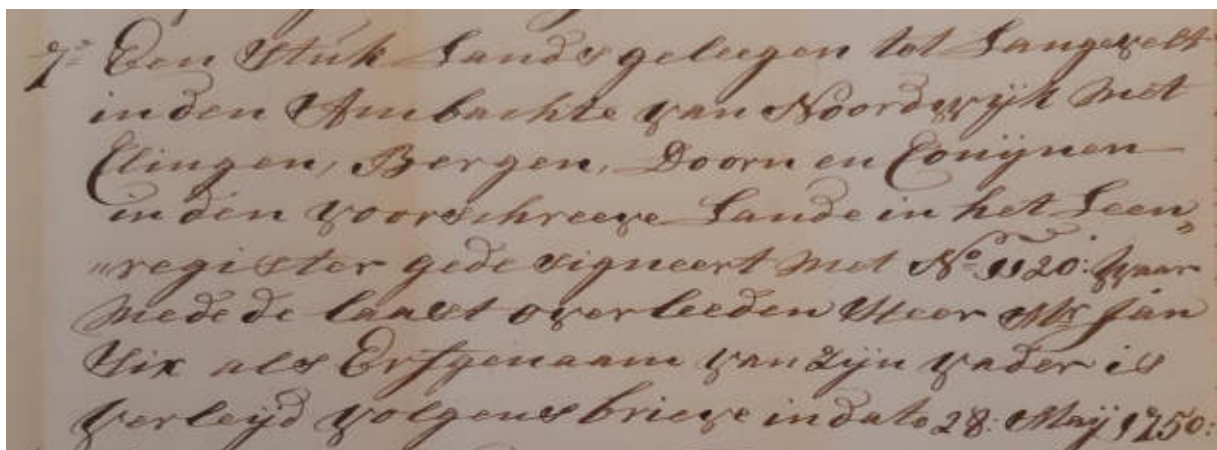 7º Een Stuk Lands geleegen tot Langevelt
in den Ambachte van Noordwijk Met
Clingen, Bergen, Doorn en Conijnen
in den voorschreeve Lande in het Leen„
„register gedesigneert met Nº 1120: waar
mede de laast overleeden Heer Mr Jan
Six als Erfgenaam van zijn vader is
verleijd volgens brieve in dato 28: Maij 1750: